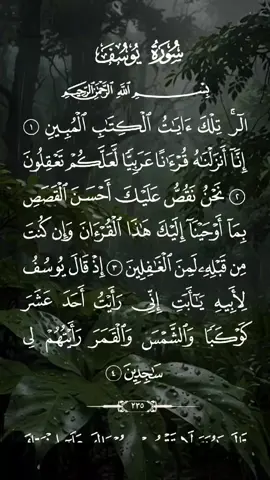 سُورَةُ يُوسُفَ
بِسْمِ اللَّهِ الرَّحْمَٰنِ الرَّحِيمِ
الٓر ۚ تِلْكَ ءَايَٰتُ الْكِتَٰبِ الْمُبِينِ ١
إِنَّآ أَنزَلْنَٰهُ قُرْءَٰنًا عَرَبِيًّا لَّعَلَّكُمْ تَعْقِلُونَ
٢ نَحْنُ نَقُصُّ عَلَيْكَ أَحْسَنَ الْقَصَصِ
بِمَآ أَوْحَيْنَآ إِلَيْكَ هَٰذَا الْقُرْءَانَ وَإِن كُنتَ
مِن قَبْلِهِۦ لَمِنَ الْغَٰفِلِينَ ٣ إِذْ قَالَ يُوسُفُ
لِأَبِيهِ يَٰٓأَبَتِ إِنِّي رَأَيْتُ أَحَدَ عَشَرَ
كَوْكَبًا وَالشَّمْسَ وَالْقَمَرَ رَأَيْتُهُمْ لِي
سَٰجِدِينَ ٤
٢٣٥